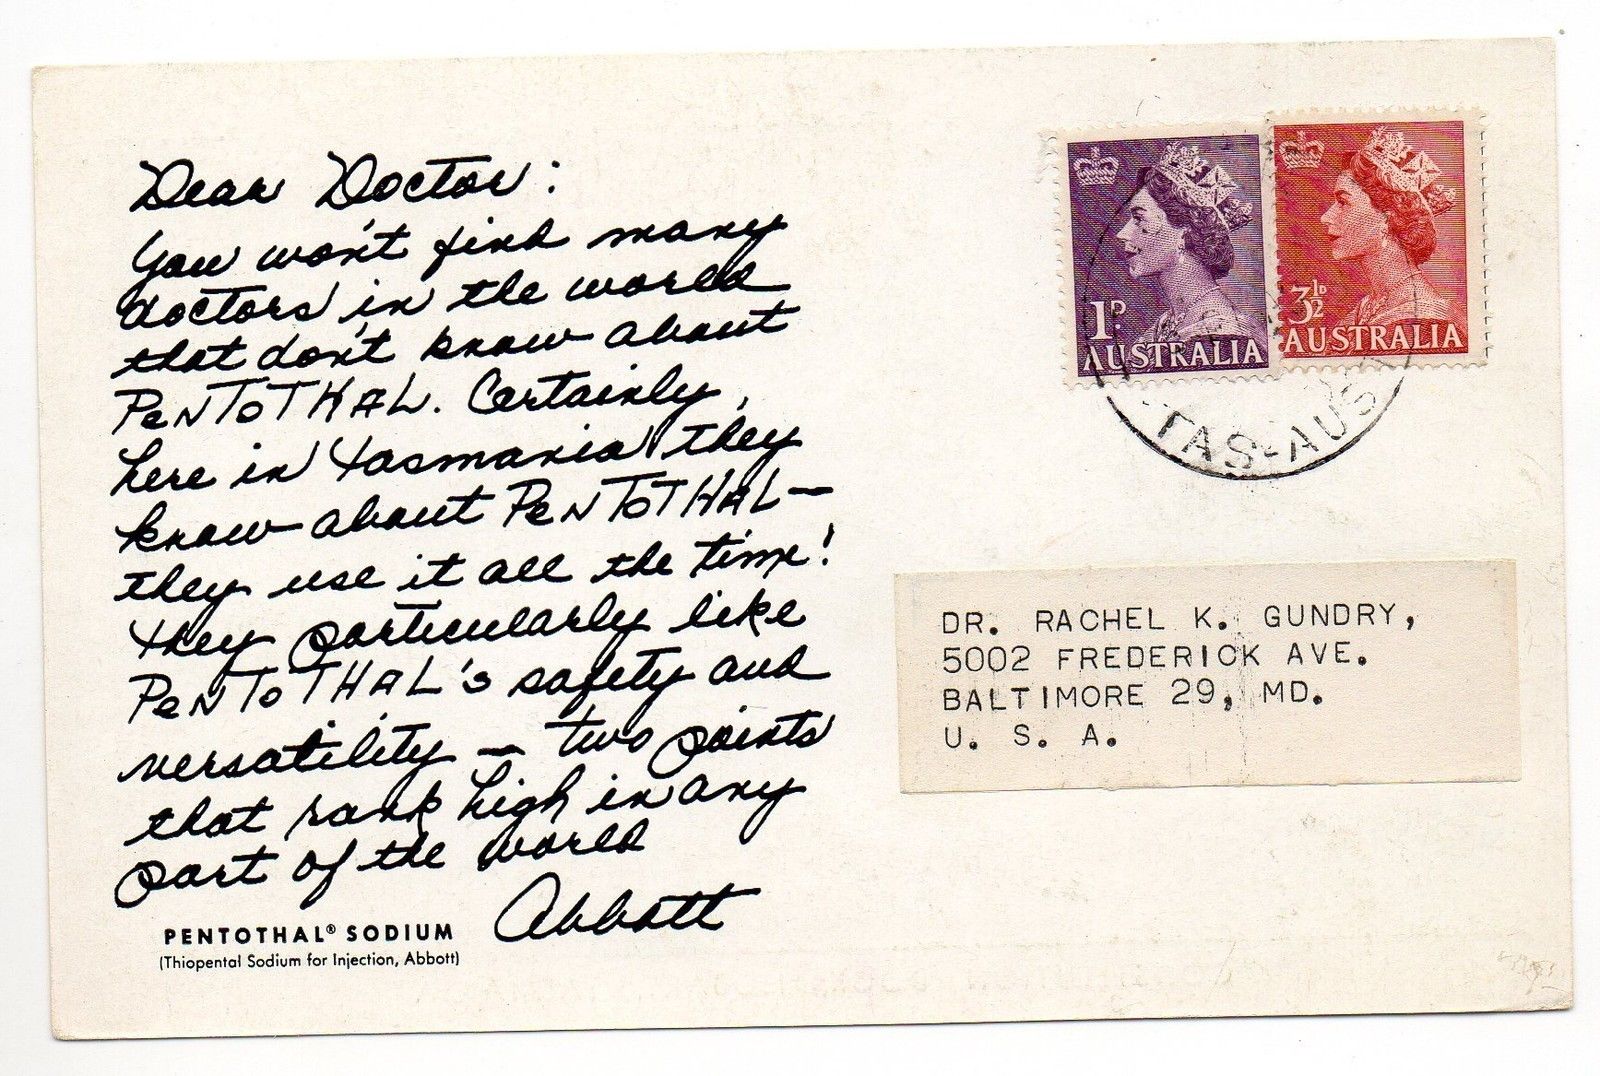 Dear Doctor:
You won't find many
doctors in the world
that don't know about
PeNToTHAL. Certainly,
here in Tasmania they
know about PeNToTHAL—
they use it all the time!
They particularly like
PeNToTHAL's safety and
versatility — two points
that rank high in any
part of the world
Abbott
PENTOTHAL® SODIUM
(Thiopental Sodium for Injection, Abbott)
1D
AUSTRALIA
3½D
AUSTRALIA
TAS-AUST
DR. RACHEL K. GUNDRY,
5002 FREDERICK AVE.
BALTIMORE 29, MD.
U. S. A.